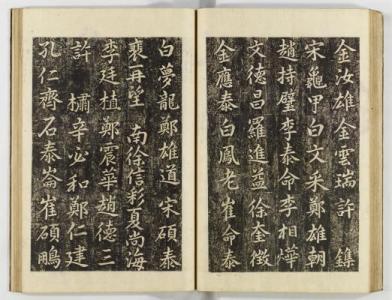 金汝雄金雲瑞許 鏶
宋龜甲白文采鄭雄朝
趙持璧李泰命李相燁
文德昌羅進益徐奎徵
金應泰白鳳老崔命泰
白夢龍鄭雄道宋碩泰
裵再望 南徐信彩夏尚海
李廷植鄭震華趙德三
許 橚辛必和鄭仁建
孔仁齊石泰崙崔碩鵬